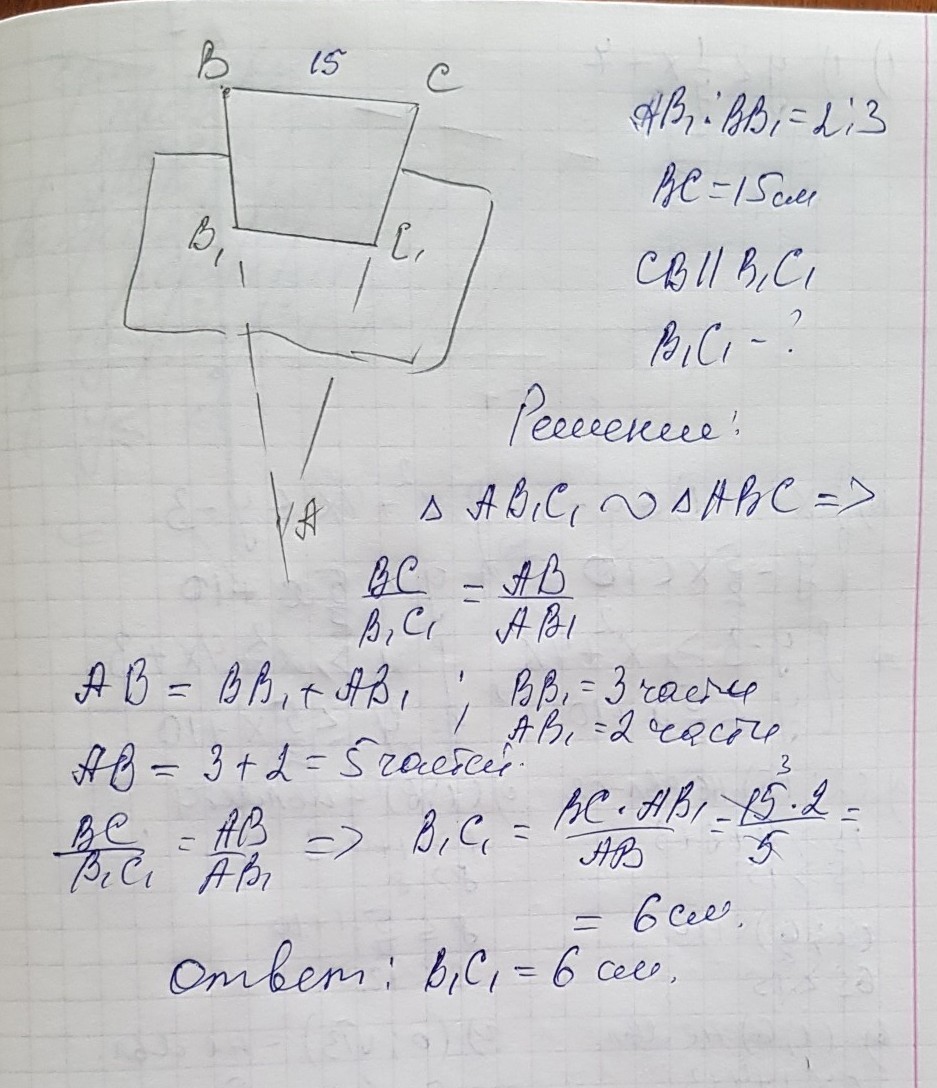 B 15 C
B₁ C₁
A
AB₁ : BB₁ = 2 : 3
BC = 15 см
CB || B₁C₁
B₁C₁ - ?
Решение:
△ AB₁C₁ ∾ △ ABC =>
BC/B₁C₁ = AB/AB₁
AB = BB₁ + AB₁ ; BB₁ = 3 части
AB₁ = 2 части
AB = 3 + 2 = 5 частей.
BC/B₁C₁ = AB/AB₁ => B₁C₁ = BC · AB₁/AB = 15 3 · 2/5 =
= 6 см.
Ответ: B₁C₁ = 6 см.